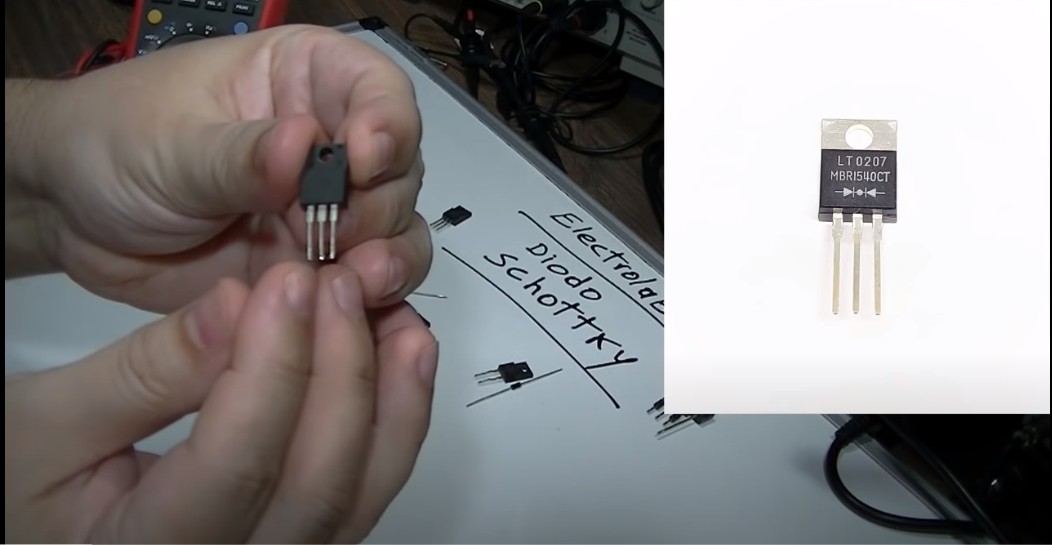 Electrolab
Diodo
Schottky
LT0207
MBR1540CT